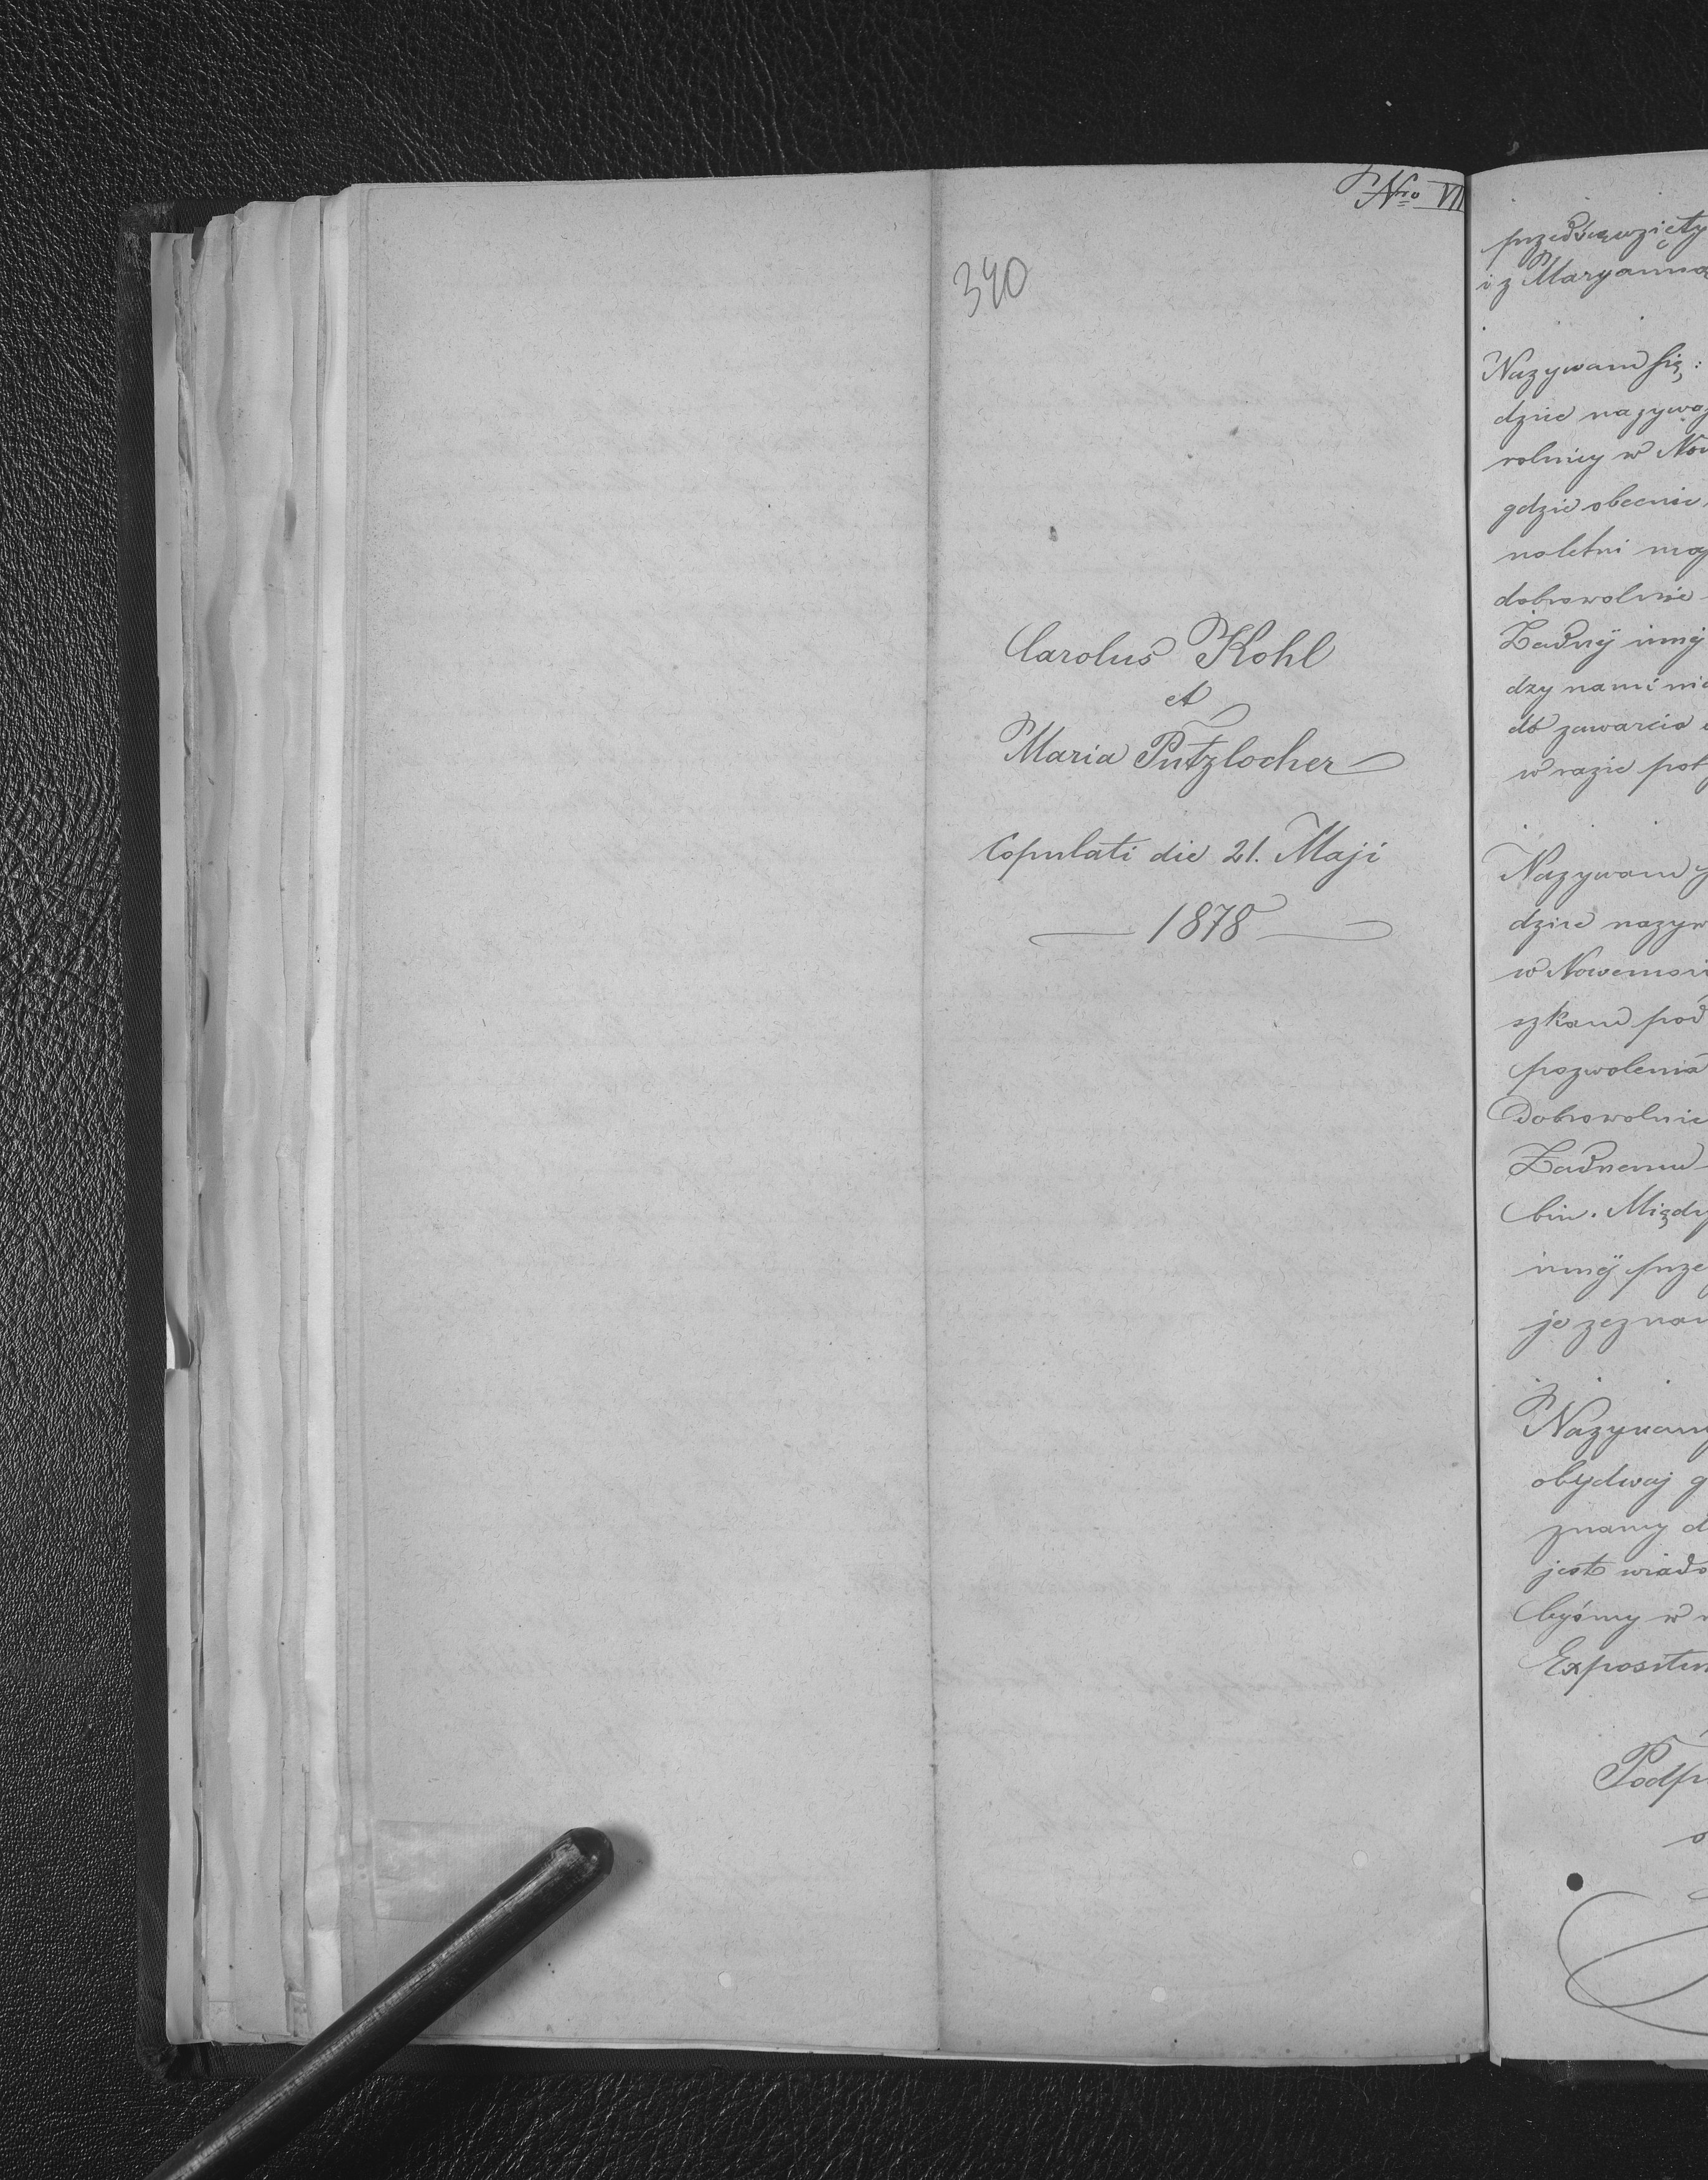 Nro VII
340
Carolus Kohl
et
Maria Putzlocher
Copulati die 21. Maji
1878
przedsięwzięty
i z Maryanną
Nazywam się:
dzice nazywaj
rolnicy w Now
gdzie obecnie
noletni
dobrowolnie
Żadnÿ innej
dzy nami nie
do zawarcia
w razie pot
Nazywam
dzice nazyw
w Nowemsi
szkam pod
pozwolenia
Dobrowolnie
Żadnemu
bin. Między
innÿ prze
je zeznan
Nazywamy
obydwaj g
znamy d
jest wiado
byśmy w
Expositur
Podpi